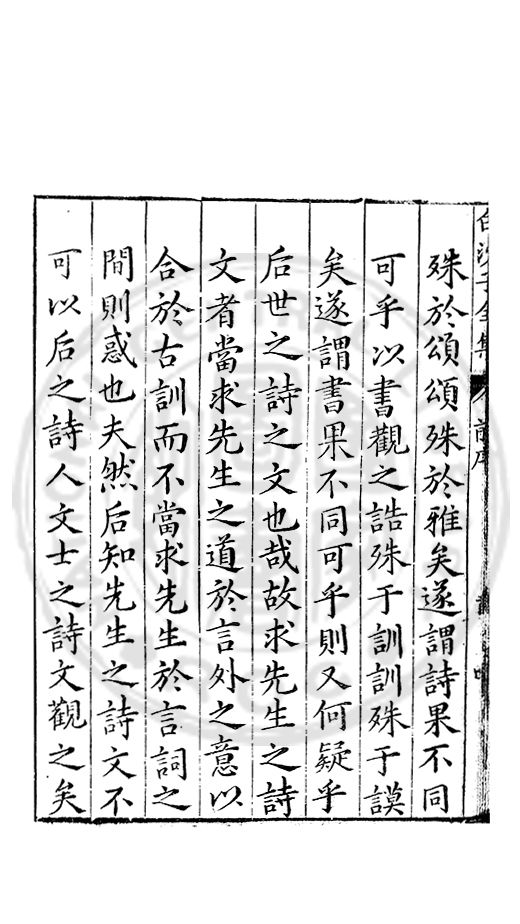 殊於頌頌殊於雅矣遂謂詩果不同
可乎以書觀之誥殊于訓訓殊于謨
矣遂謂書果不同可乎則又何疑乎
后世之詩之文也哉故求先生之詩
文者當求先生之道於言外之意以
合於古訓而不當求先生於言詞之
間則惑也夫然后知先生之詩文不
可以后之詩人文士之詩文觀之矣